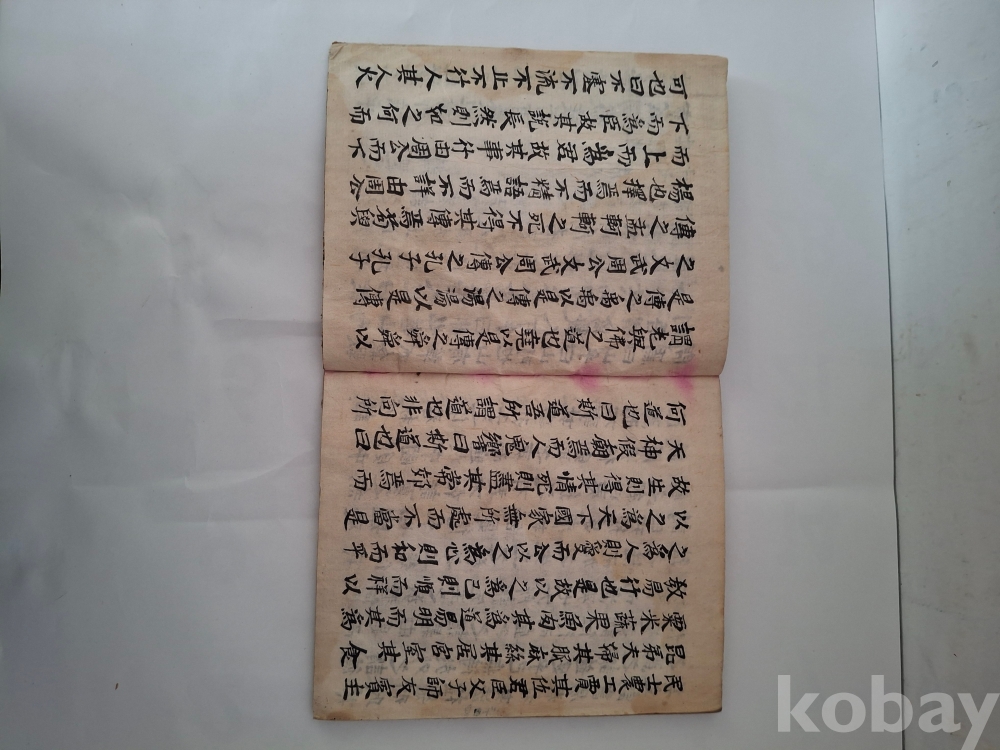 民士農工賈其位君臣父子師友賓主
昆弟夫婦其服麻絲其居宮室其食
粟米蔬果魚肉其為道易明而其為
教易行也是故以之為己則順而祥以
之為人則愛而公以之為心則和而平
以之為天下國家無所處而不當是
故生則得其情死則盡其常郊焉而
天神假廟焉而人鬼饗曰斯道也曰
何道也曰斯道吾所謂道也非向所
謂老與佛之道也堯以是傳之舜舜以
是傳之禹禹以是傳之湯湯以是傳
之文武周公文武周公傳之孔子孔子
傳之孟軻軻之死不得其傳焉荀與
楊也擇焉而不精語焉而不詳由周公
而上上而為君故其事行由周公而下
下而為臣故其說長然則如之何而
可也曰不塞不流不止不行人其人火
kobay